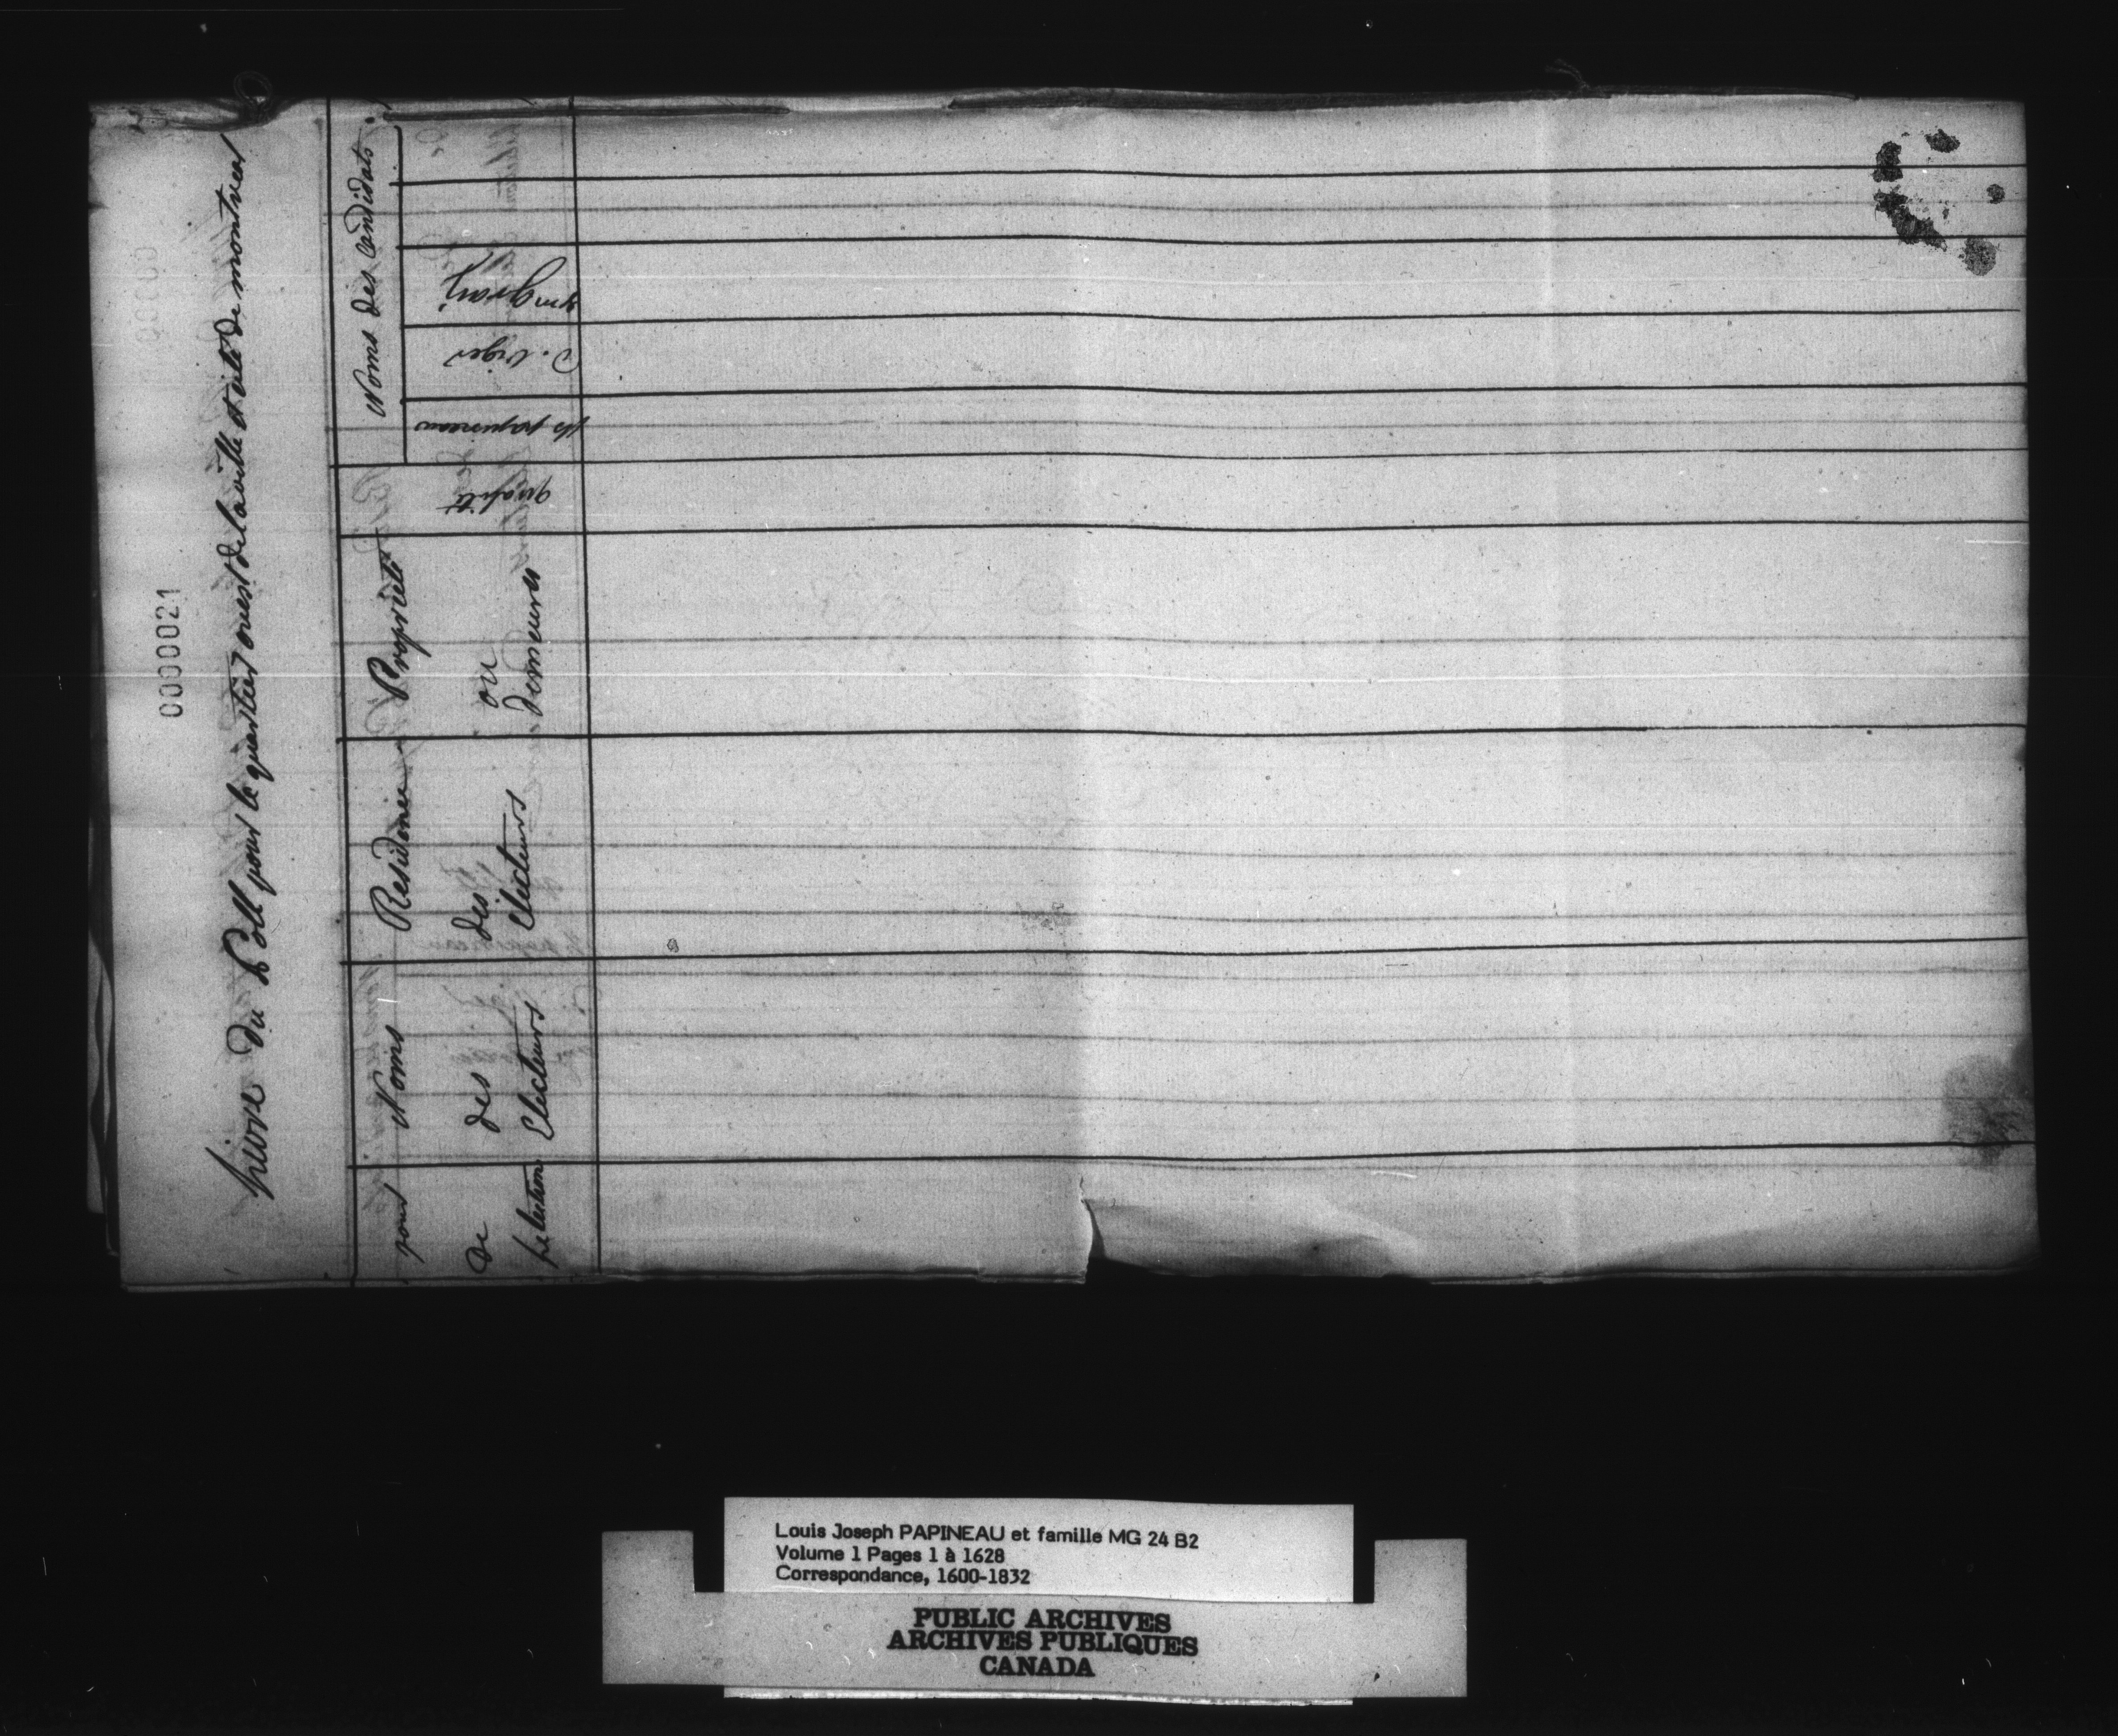 0000021
Livre du Poll pour le quartier ouest de la ville et cité de montreal
jour
de
lelection
Noms
des
Electeurs
Residence
des
Electeurs
Propriété
ou
demeures
qualité
Noms des Candidats
papineau
D. Viger
Louis Joseph PAPINEAU et famille MG 24 B2
Volume 1 Pages 1 à 1628
Correspondance, 1600-1832
PUBLIC ARCHIVES
ARCHIVES PUBLIQUES
CANADA